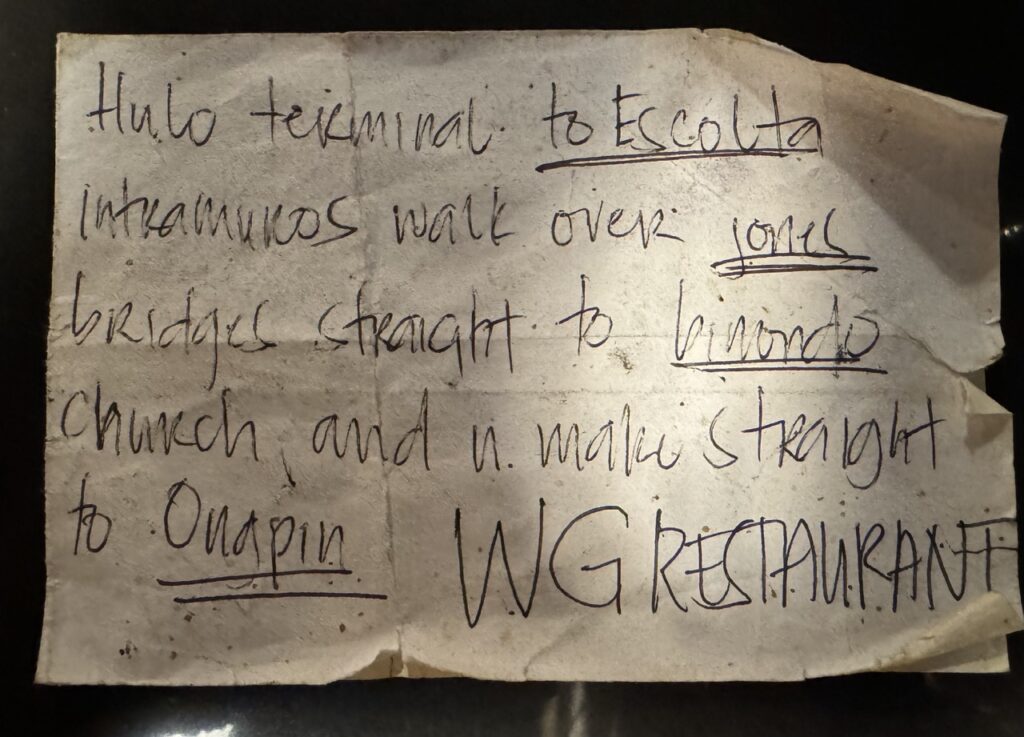 Hulo terminal to Escolta
intramuros walk over jones
bridges straight to binondo
church and u. make straight
to Onapin WG RESTAURANT